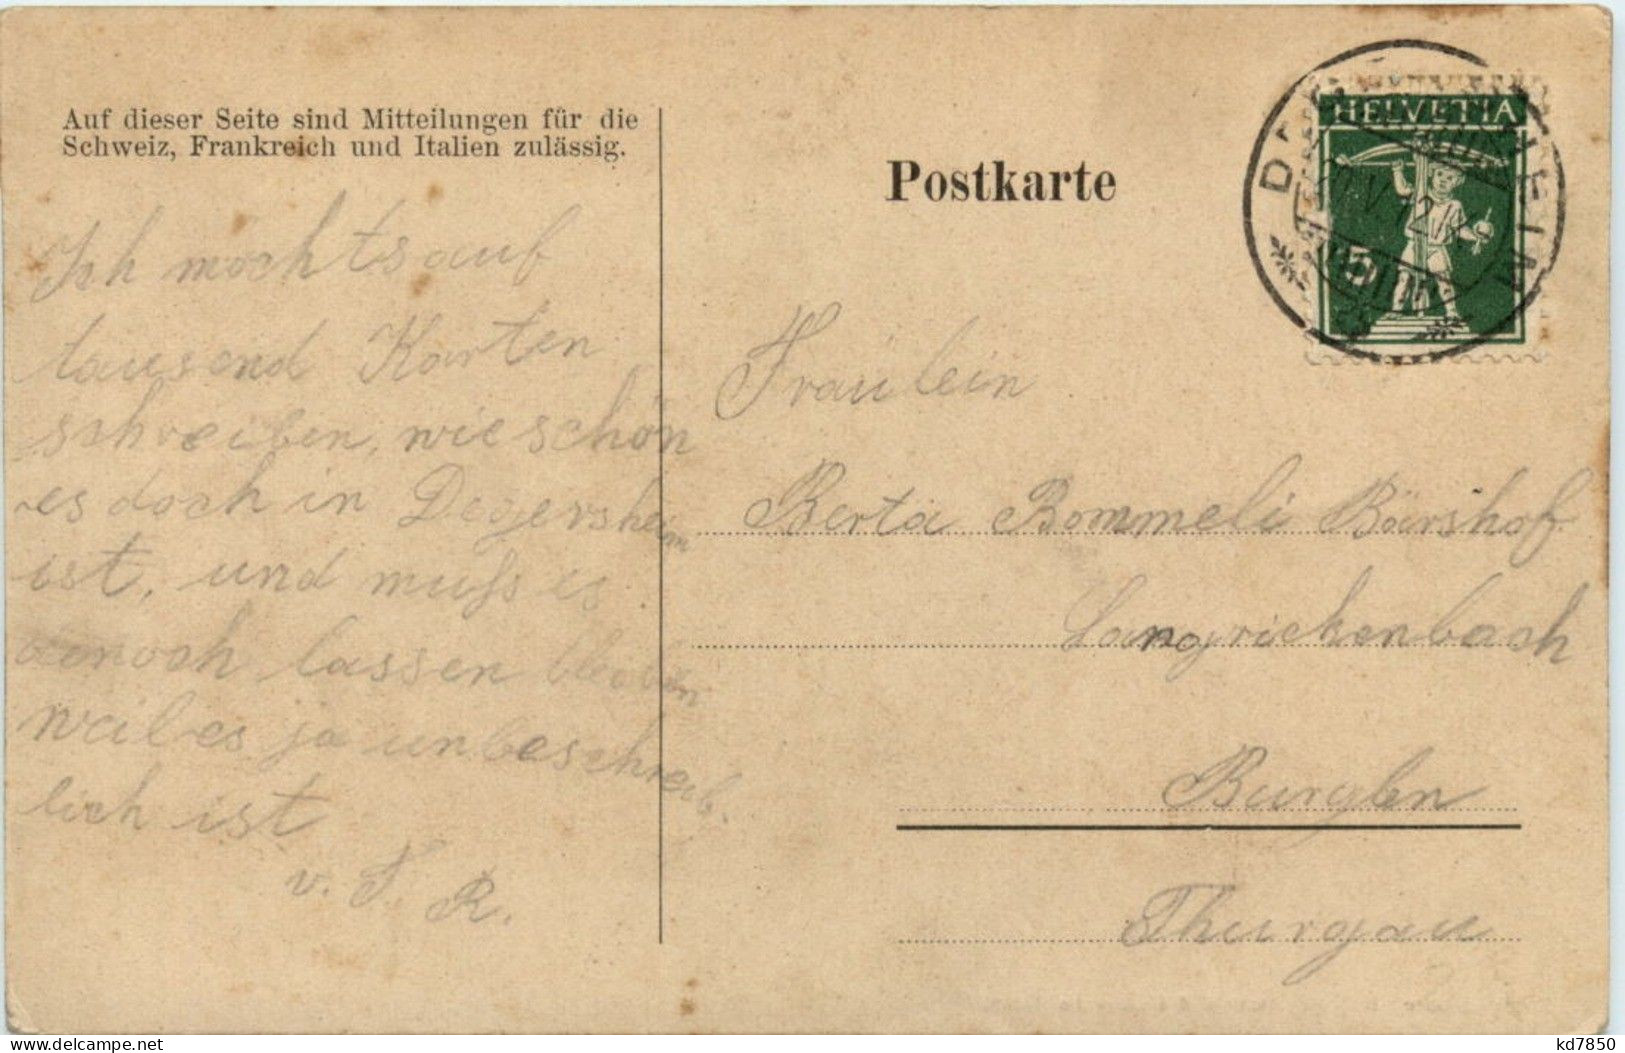 Auf dieser Seite sind Mitteilungen für die
Schweiz, Frankreich und Italien zulässig.
Postkarte
HELVETIA
5
DEGERSHEIM
Ich möchts auf
tausend Karten
schreiben, wie schön
es doch in Degersheim
ist, und muss es
denoch lassen bleiben
weil es ja unbeschreib.
lich ist
v. F. R.
Fräulein
Berta Bommeli Bärshof
Langrickenbach
Burglen
Thurgau
www.delcampe.net
kd7850